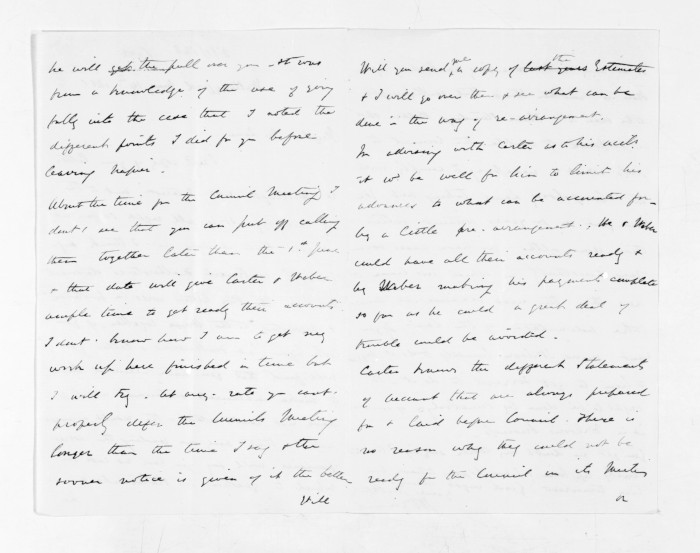 he will get the pull over you - It was
from a knowledge of the use of going
fully into the case that I noted the
different points I did for you before
leaving Napier.
About the time for the Council Meeting I
dont see that you can put off calling
them together later than the 1st June
& that date will give Carter & Weber
ample time to get ready their accounts
I dont know how I am to get my
work up here finished in time but
I will try. At any rate you cant
properly defer the Councils Meeting
longer than the time I say & the
sooner notice is given of it the better
Will
Will you send me a copy of last years the Estimates
& I will go over them & see what can be
done in the way of re-arrangement.
In advising with Carter as to his accts
it wd be well for him to limit his
advances to what can be accounted for
by a little pre-arrangement; He & Weber
could have all their accounts ready &
by Weber making his payments complete
so far as he could a great deal of
trouble could be avoided.
Carter knows the different Statements
of account that are always prepared
for & laid before Council. There is
no reason why they could not be
ready for the Council on its Meeting
or